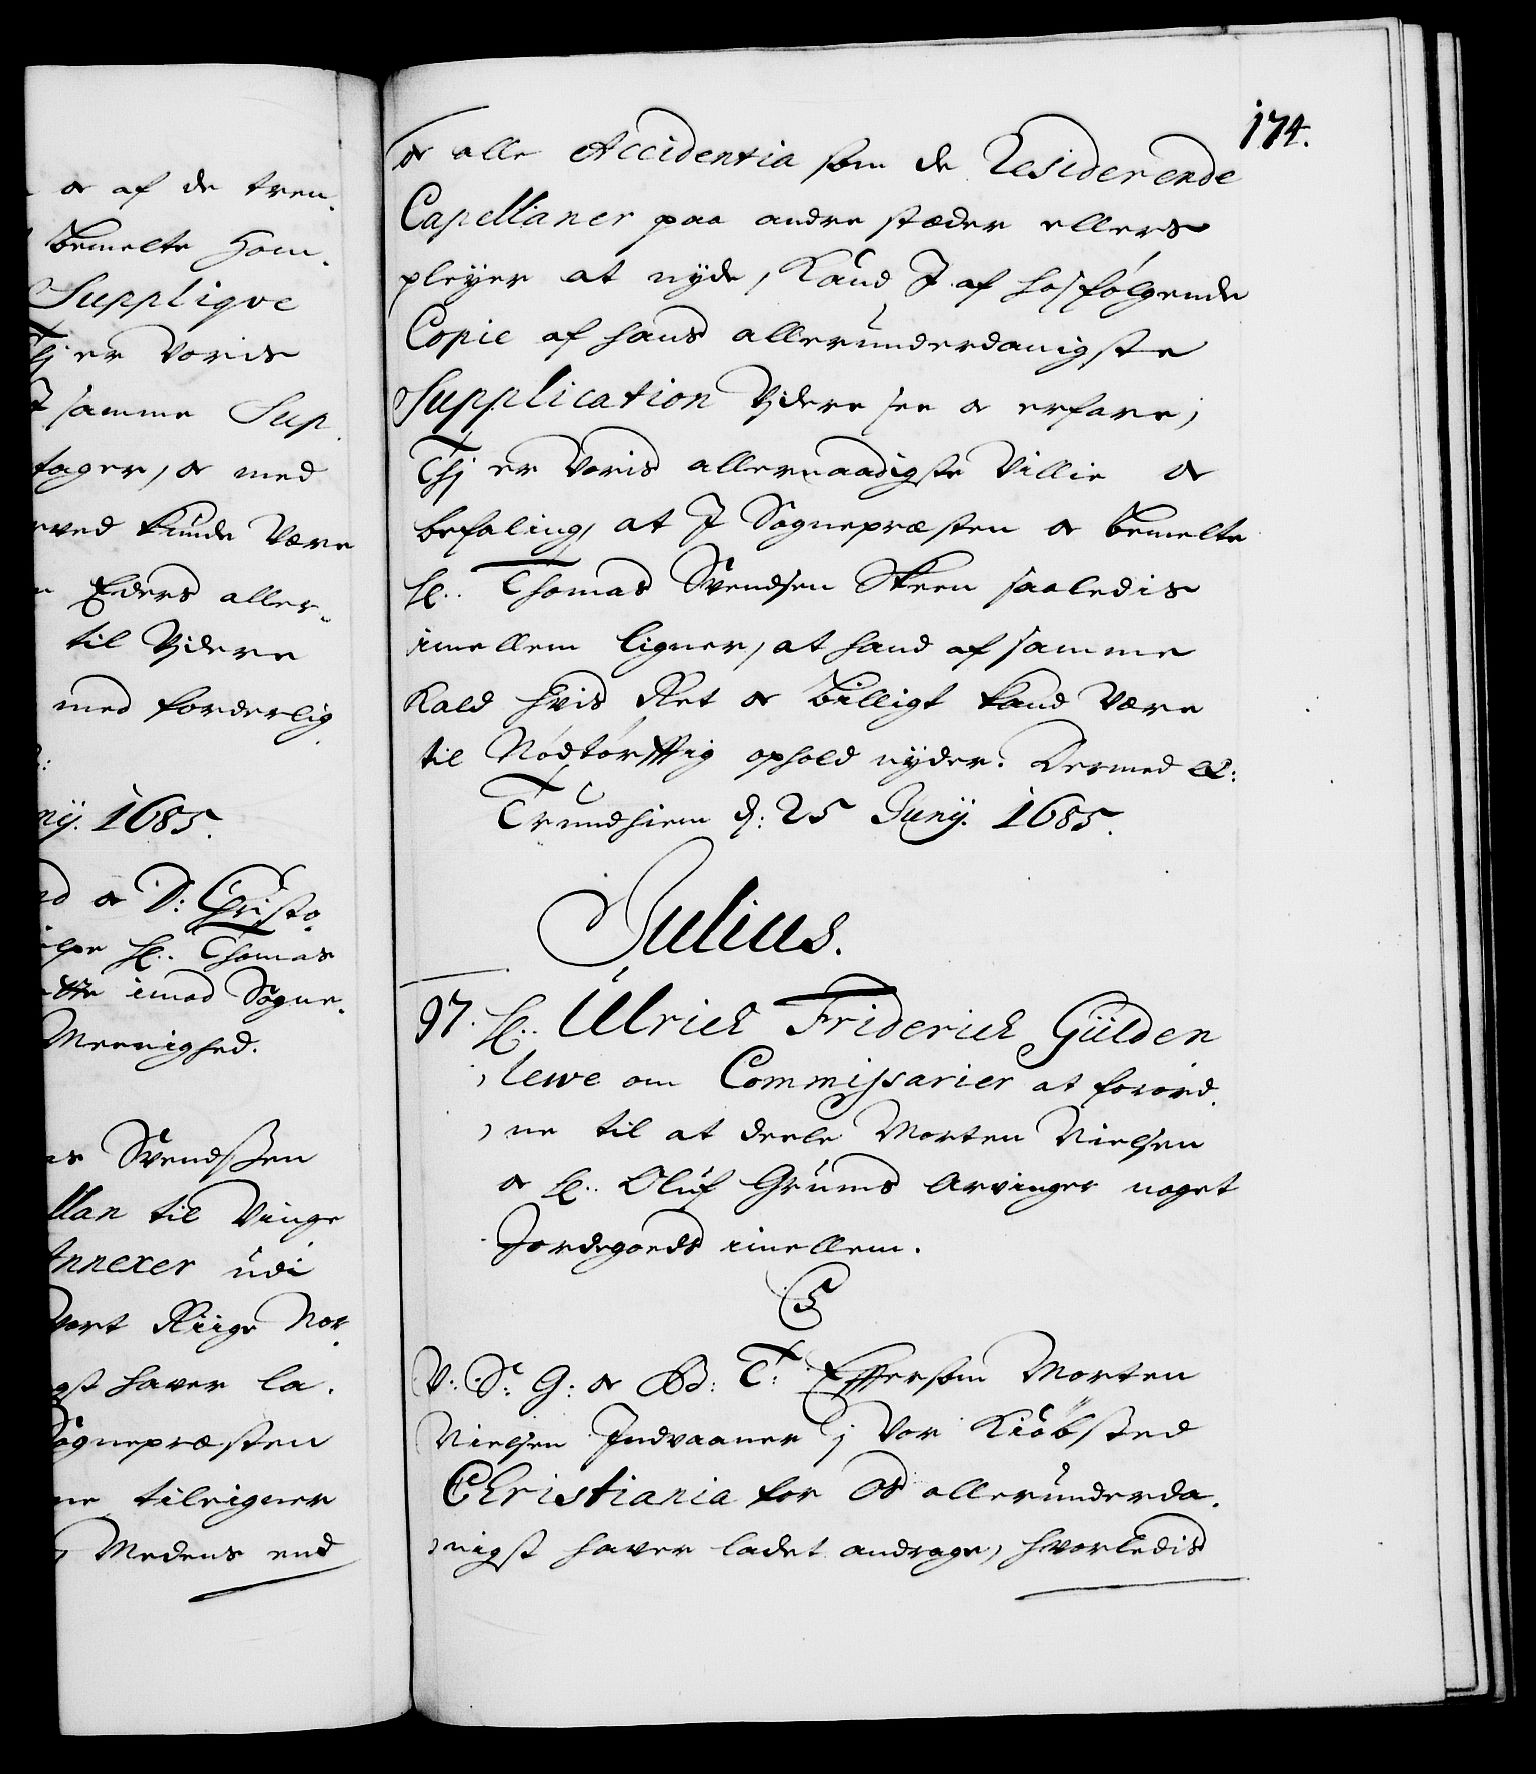 174.
oc af de tven
bemelte Hom,
Supplique
Thj er voris
J samme Sup,
tager, oc med
rved kunde være
Eders aller,
til Videre
med forderlig
nij. 1685.
nd oc D: Christo,
elpe Hr. Thomas
ette imod Sogne,
Meenighed.
as Svendssen
llan til Vinge
Annexer udi
Vort Riige Nor,
gst haver la,
Sognepræsten
ne tileigner
Medens end
oc alle Accidentia som de Residerende
Capellaner paa andre stæder ellers
pleyer at nyde, Kand J af hosfølgende
Copie af hans allerunderdanigste
Supplication Videre see oc erfare;
Thj er Voris allernaadigste Villie oc
befaling, at J Sognepræsten oc bemelte
Hr. Thomas Svendsen Skeen saaledis
imellem ligner, at hand af samme
Kald hvis Ret oc billigt kand være
til Nødtørfftig ophold nyder. Dermed etc:
Trundhiem d: 25 Junij. 1685.
Julius.
97. Hr. Ulrich Friderich Gülden
,lewe om Commissarier at forord,
,ne til at deele Morten Nielsen
oc Hr. Oluf Grums Arvinger noget
Jordegoeds imellem.
C5
V: S: G: oc Bd: T: Effersom Morten
Nielsen Indvaaner j Vor Kiøbsted
Christiania for Os allerunderda,
,nigst haver ladet andrage, hvorledis